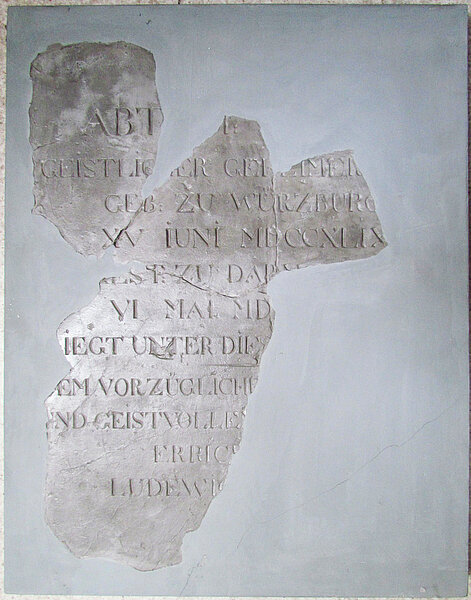 ABT
GEISTLICHER GEHEIMER
GEB: ZU WÜRZBURG
XV IUNI MDCCXLIX
GEST: ZU DARM
VI MAI MD
LIEGT UNTER DIE
DEM VORZÜGLICHE
UND GEISTVOLLEN
ERRIC
LUDEWI